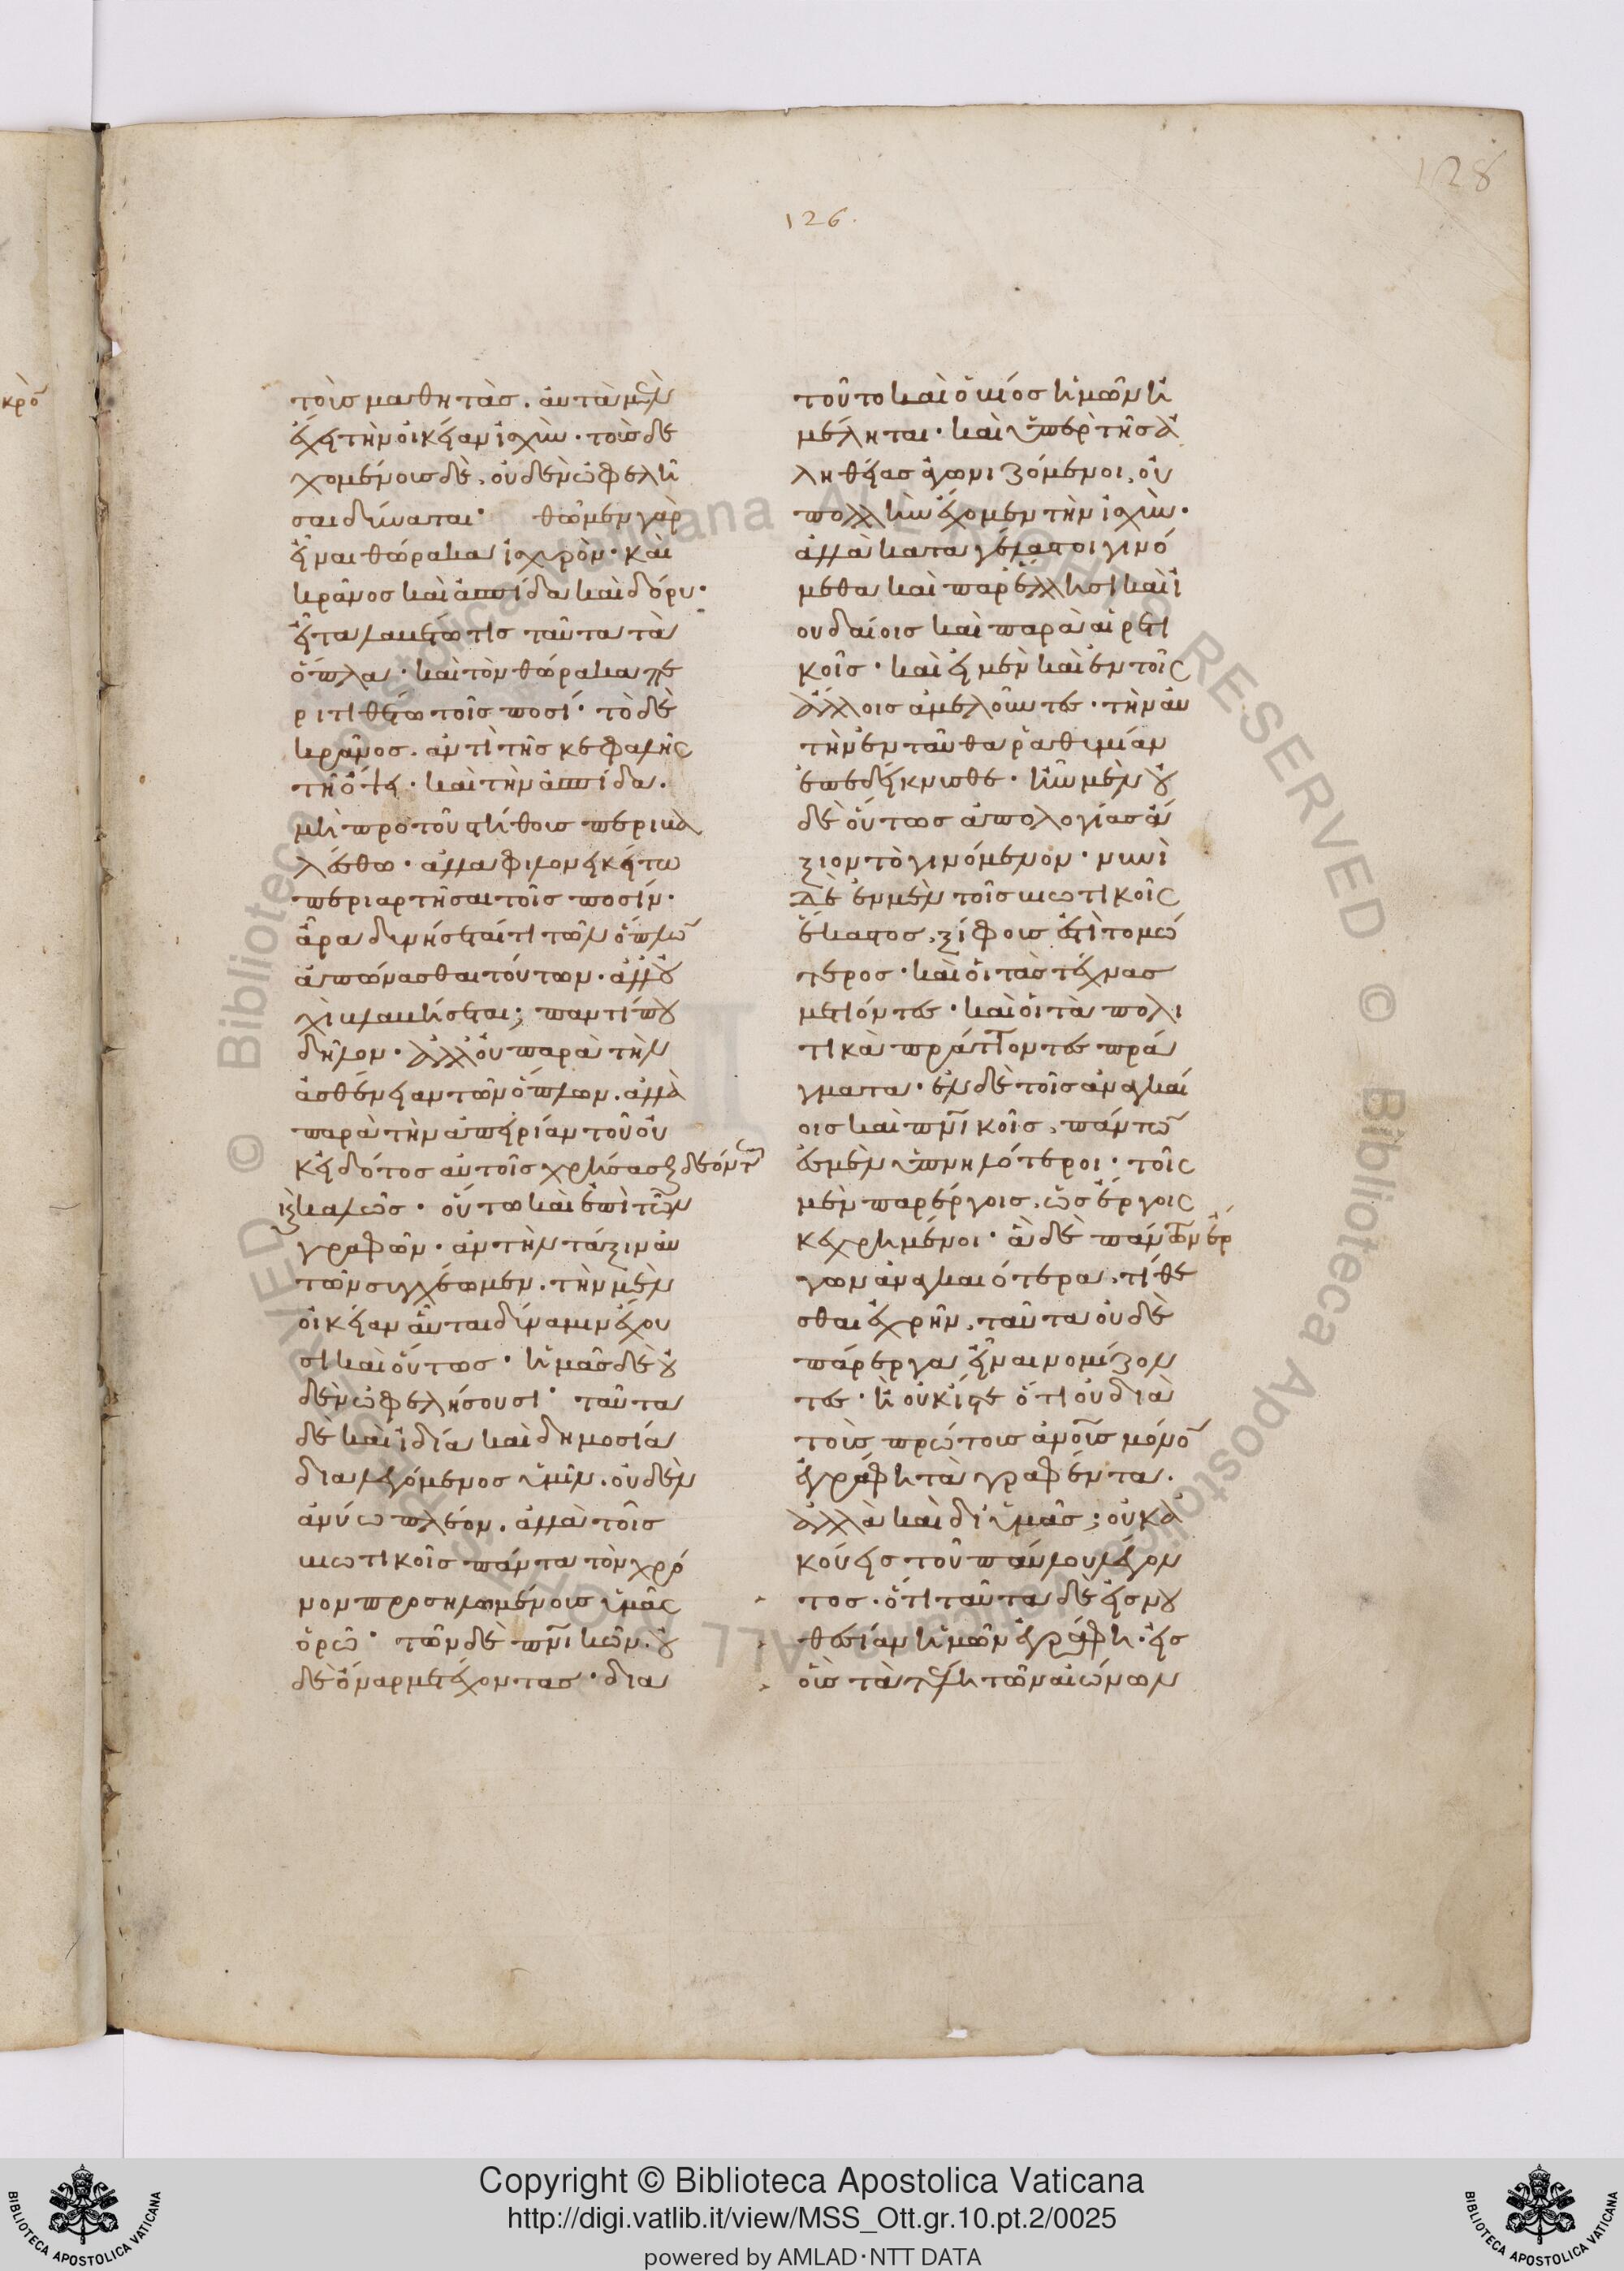 128
126.
κρο
τοὺσ μαθητὰσ. αὐτὰ μὲν
ἔχει τὴν οἰκείαν ἰσχὺν· τοὺσ δε
χομένουσ δὲ, οὐδὲν ὠφελῆ
σαι δύναται· θῶμεν γὰρ
εἶναι θώρακα ἰσχυρὸν· καὶ
κράνοσ καὶ ἀσπίδα καὶ δόρυ·
εἶτα λαβέτω τὶσ ταῦτα τὰ
ὅπλα· καὶ τὸν θώρακα πε
ριτιθέτω τοῖσ ποσί· τὸ δὲ
κράνοσ. ἀντὶ τῆσ κεφαλῆσ
τῆ ὄψει· καὶ τὴν ἀσπίδα.
μὴ προ τοῦ στήθουσ περικα
λέσθω· ἀλλα φιλονεικείτω
περιαρτῆσαι τοῖσ ποσίν·
ἆρα δυνήσεταί τι τῶν ὅπλων
ἀπώνασθαι τούτων· ἀλλ' οὐ
χὶ βλαβήσεται; παντί που
δῆλον· ἀλλ' οὐ παρὰ τὴν
ἀσθένειαν τῶν ὅπλων. ἀλλὰ
παρὰ τὴν ἀπειρίαν τοῦ οὐ
κ εἰδότοσ αὐτοῖσ χρήσασθαι δεόντωσ
καλῶσ· οὕτω καὶ ἐπὶ τῶν
γραφῶν· ἂν τὴν τάξιν αὐ
τῶν συγχέωμεν. τὴν μὲν
οἰκείαν αὗται δύναμιν ἔχου
σι καὶ οὕτωσ· ἡμᾶσ δὲ οὐ
δὲν ὠφελήσουσι· ταῦτα
δὲ καὶ ἰδία καὶ δημοσία
διαλεγόμενοσ ὑμῖν. οὐδὲν
ἀνύω πλέον. ἀλλὰ τοῖσ
βιωτικοῖσ πάντα τὸν χρό
νον προσηλωμένουσ ὑμᾶσ
ὁρῶ· τῶν δὲ πνικῶν. οὐ
δὲ ὄναρ μετέχοντασ· δια
τοῦτο καὶ ὁ βίοσ ἡμῶν ἠ
μέληται· καὶ ὑπὲρ τῆσ ἀ
ληθείασ ἀγωνιζόμενοι, οὐ
πολλὴν ἔχομεν τὴν ἰσχὺν·
ἀλλὰ καταγέλαστοι γινό
μεθα καὶ παρ' ἕλλησι καὶ ἰ
ουδαίοισ καὶ παρὰ αἱρετι
κοῖσ· καὶ εἰ μὲν καὶ ἐν τοῖσ
ἄλλοισ ἀμελοῦντεσ· τὴν αὐ
τὴν ἐνταῦθα ῥαθυμίαν
ἐπεδείκνυσθε· ἦν μὲν οὐ
δὲ οὕτωσ ἀπολογίασ ἄ
ξιον τὸ γινόμενον· νυνὶ
δὲ ἐν μὲν τοῖσ βιωτικοῖσ
ἕκαστοσ, ξίφουσ ἐστὶ τομώ
τεροσ· καὶ οἱ τὰσ τέχνασ
μετιόντεσ· καὶ οἱ τὰ πολι
τικὰ πράττοντεσ πρά
γματα· ἐν δὲ τοῖσ ἀναγκαί
οισ καὶ πνικοῖσ, πάντων
ἐσμὲν ὑπνηλότεροι· τοῖσ
μὲν παρέργοισ, ὡσ ἔργοισ
κεχρημένοι· ἃ δὲ πάντων ἔρ
γων ἀναγκαιότερα, τίθε
σθαι ἐχρῆν, ταῦτα οὐδὲ
πάρεργα εἶναι νομίζον
τεσ· ἢ οὐκ ἴστε ὅτι οὐ διὰ
τοὺσ πρώτουσ ἀνουσ μόνον
ἐγράφη τὰ γραφέντα.
ἀλλὰ καὶ δι' ὑμᾶσ; οὐκ ἀ
κούεισ τοῦ παύλου λέγον
τοσ. ὅτι ταῦτα δὲ εἰσ νου
θεσίαν ἡμῶν ἐγράφη· εἰσ
οὓσ τὰ τέλη τῶν αἰώνων
Copyright © Biblioteca Apostolica Vaticana
http://digi.vatlib.it/view/MSS_Ott.gr.10.pt.2/0025
powered by AMLAD·NTT DATA